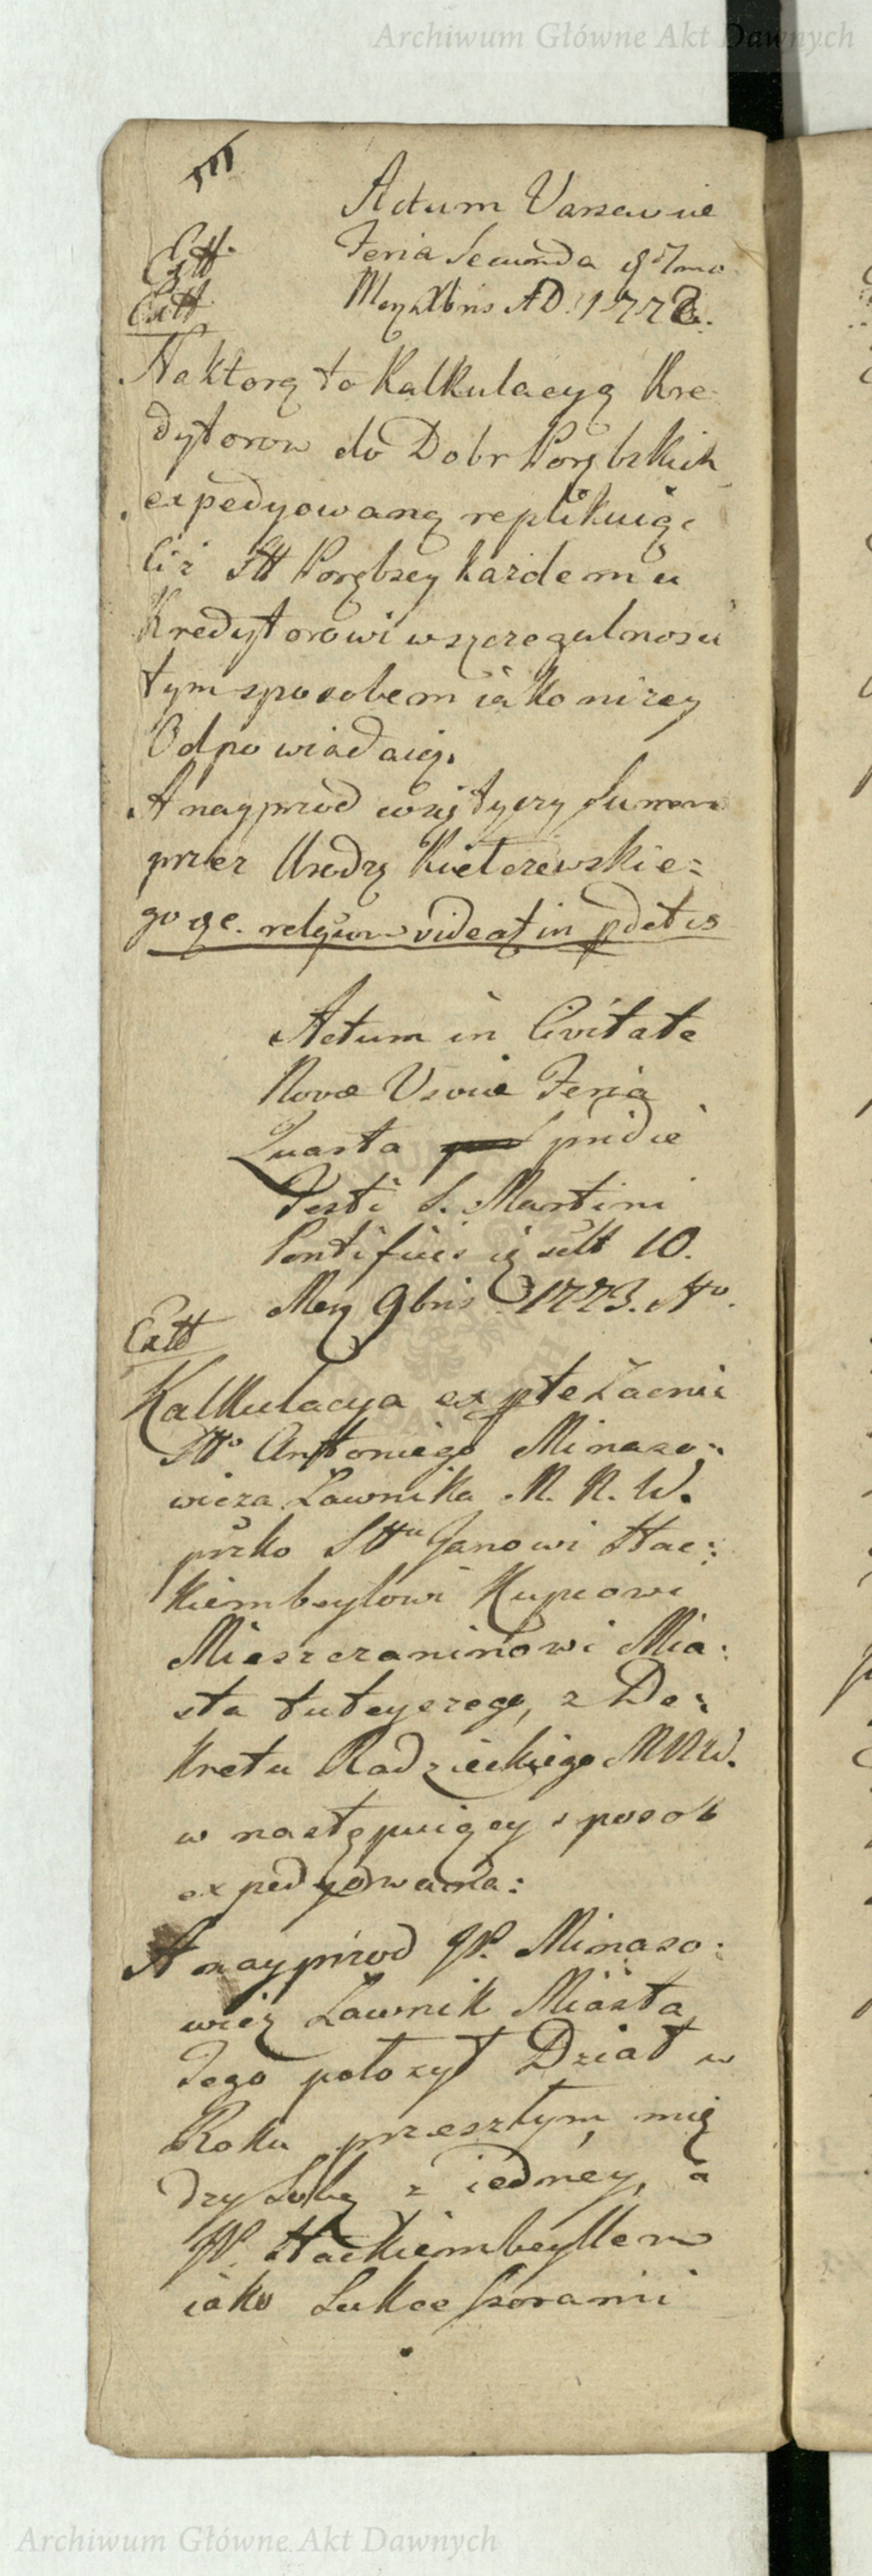 Archiwum Główne Akt Dawnych
Actum Varsaviae
Extt. Feria Secunda
Extt Mens Xbris AD. 1772.
Na ktorą to Kalkulacyą Kre
dytorow do Dobr Porębskich
expedyowaną replikuiąc
Ciż Stt Porębscy każdemu
Kredytorowi w szczegulnosci
tym sposobem iako niżey
Odpowiadaią.
A nayprzod względem Summ
przez Urodz Kietczewskie=
go &c. reliqum videat in pdctis
Actum in Civitate
Nova Varviae Feria
Quarta pridie
Festi S. Martini
Pontificis 10.
Mens 9bris 1773. Ao.
Extt
Kalkulacya ex pte Zacnie
Stto Antoniego Minaso:
wicza Ławnika M. N. W.
przko Sttu Janowi Hac:
kiembeylowi Kupcowi
Mieszczaninowi Mia:
sta tuteyszego, z De:
kretu Radzieckiego M N W.
w następuiący sposob
expedyowana:
A nayprzod JP. Minaso:
wicz Ławnik Miasta
Tego położył Dział w
Roku przeszłym mię
dzy Sobą z iedney, a
JP. Hackiembeyllem
iako Sukcessorami
Archiwum Główne Akt Dawnych